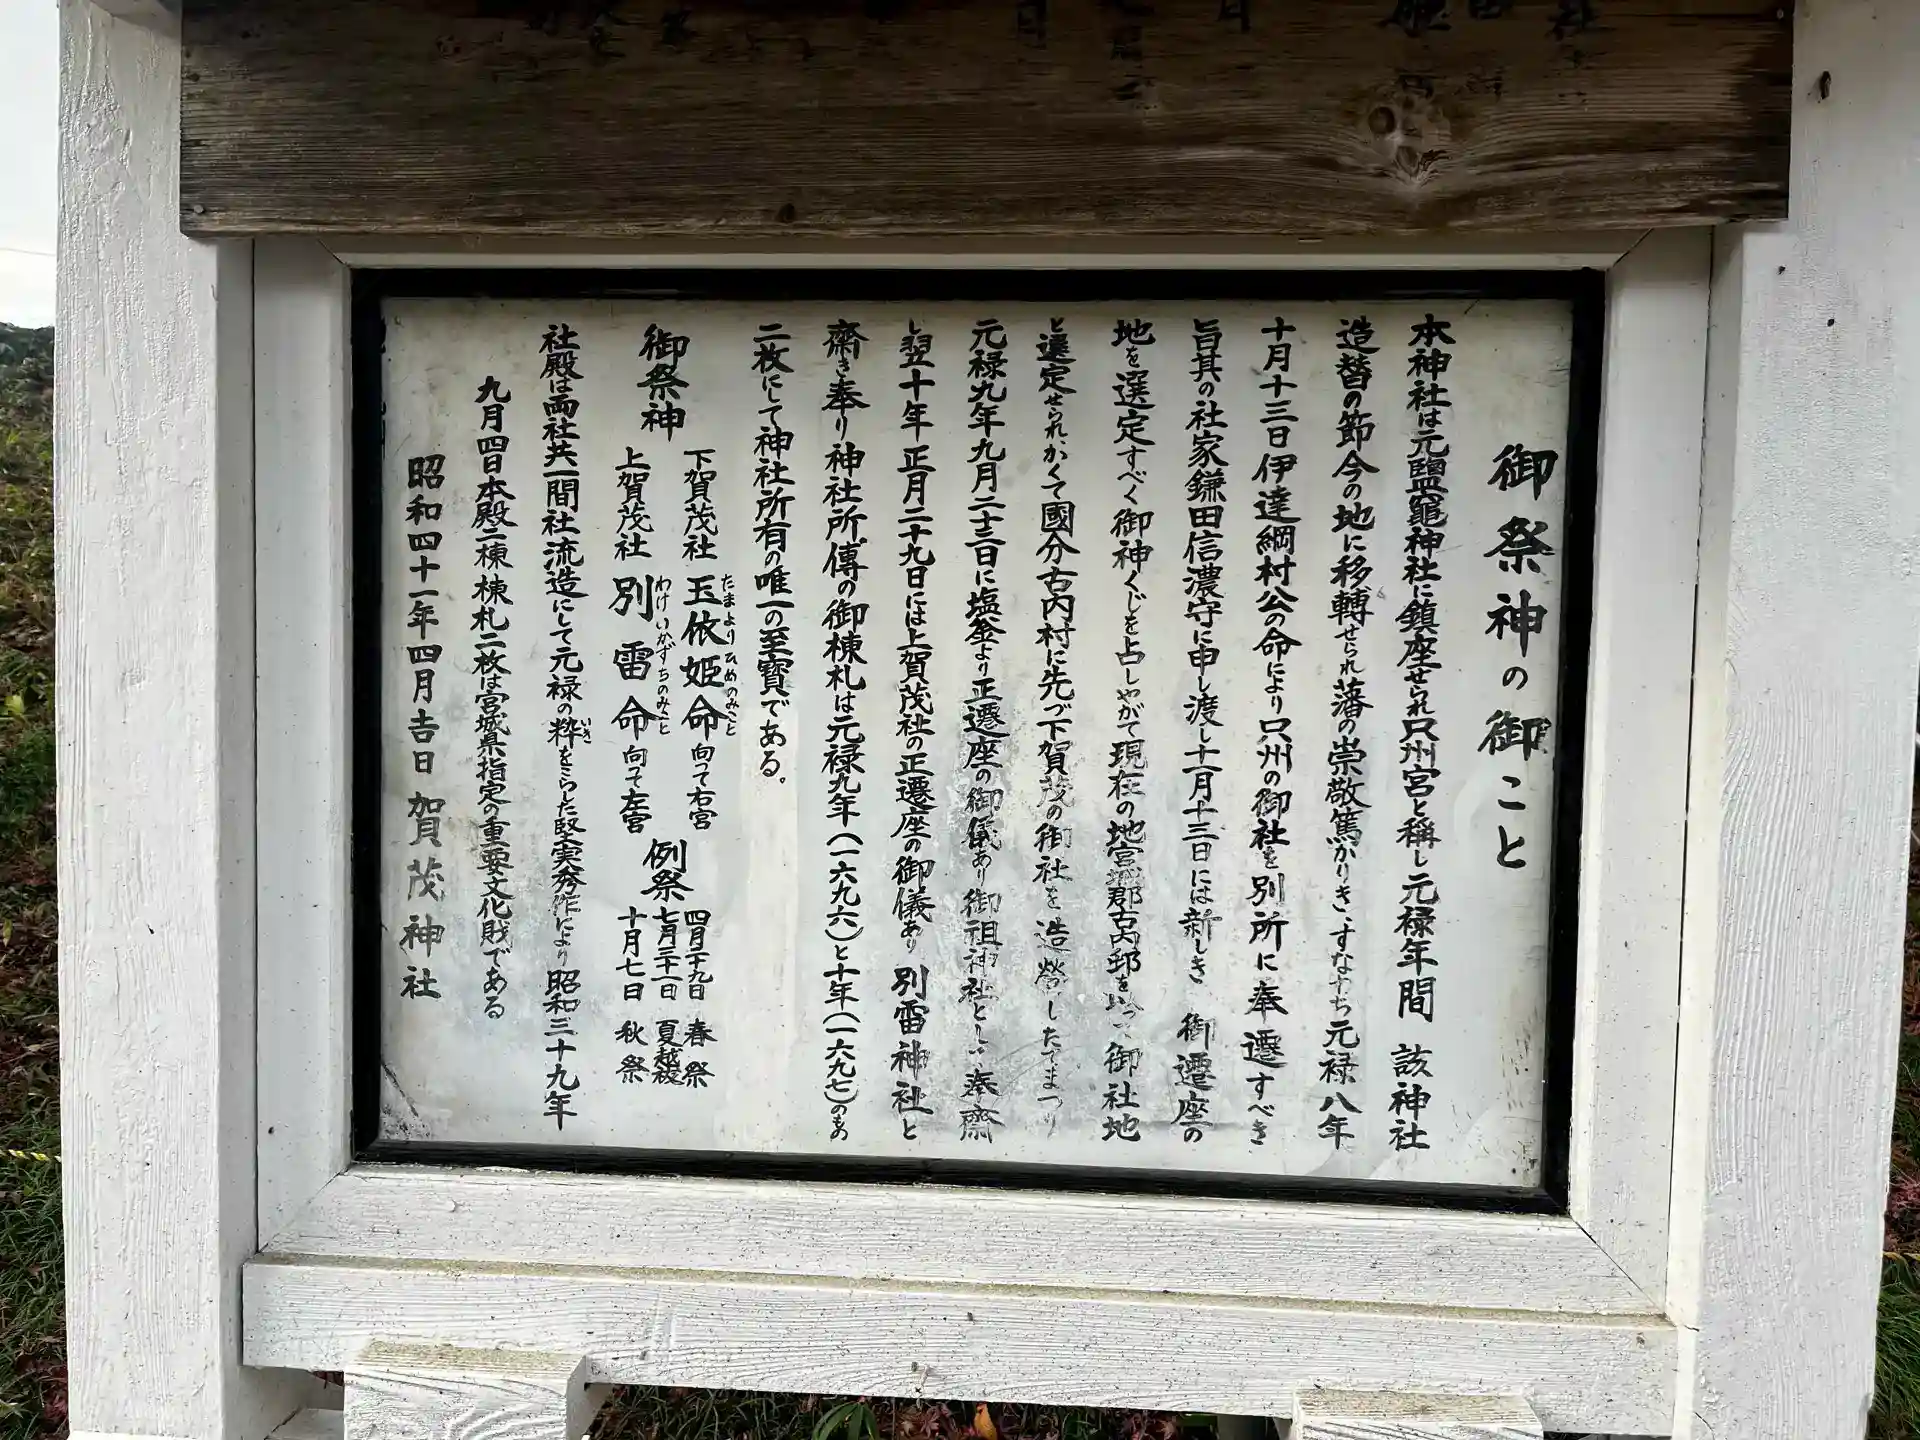 御祭神の御こと
本神社は元鹽竈神社に鎮座せられ只州宮と稱し元禄年間 該神社
造替の節今の地に移轉せられ藩の崇敬篤かりき、すなわち元禄八年
十月十三日伊達綱村公の命により只州の御社を別所に奉遷すべき
旨其の社家鎌田信濃守に申し渡し十一月十三日には新しき 御遷座の
地を選定すべく御神くじを占しやがて現在の地宮城郡古内邨を以つ御社地
と選定せられかくて國分古内村に先づ下賀茂の御社を造營したてまつり
元禄九年九月二十三日に塩釜より正遷座の御儀あり御祖神社とし 奉齋
し翌十年正月二十九日には上賀茂社の正遷座の御儀あり 別雷神社と
齋き奉り神社所傳の御棟札は元禄九年(一六九六)と十年(一六九七)のもの
二枚にして神社所有の唯一の至寶である。
御祭神
下賀茂社 玉依姫命 向って右宮
たまよりひめのみこと
上賀茂社 別雷命 向って左宮
わけいかずちのみこと
例祭
四月二十九日 春祭
七月三十一日 夏越祓
十月七日 秋祭
社殿は両社共一間社流造にして元禄の粋をこらした堅実秀作により昭和三十九年
いき
九月四日本殿二棟棟札二枚は宮城県指定の重要文化財である
昭和四十一年四月吉日 賀茂神社